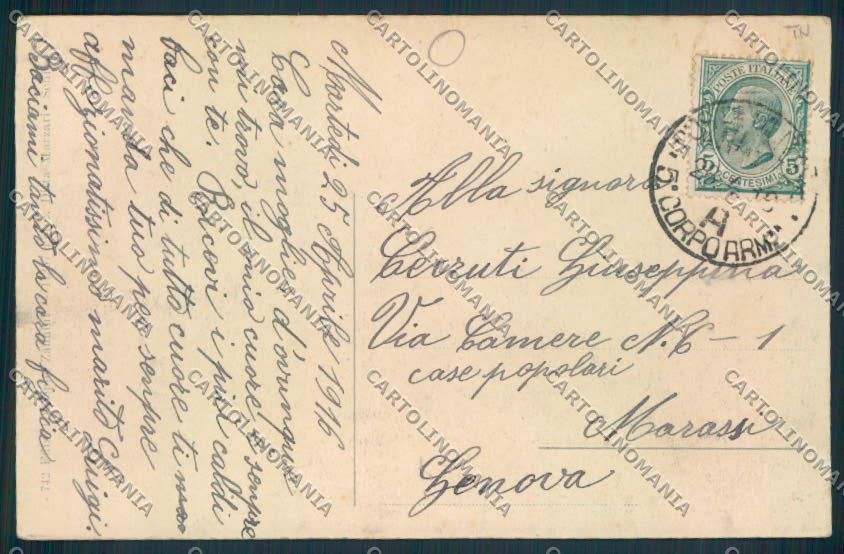 Martedi 25 Aprile 1916
Cara moglie d'ovunque
mi trovo, il mio cuore è sempre
con te. Ricevi i più caldi
baci che di tutto cuore ti
manda tuo per sempre
affezionatissimo marito
Luigi.
Baciami tanto la cara
Alla signora
Cerruti Giuseppina
Via Camere N. 6 - 1
case popolari
Marassi
Genova
POSTE ITALIANE
5 CENTESIMI 5
5° CORPO ARM
A
TN
CARTOLINOMANIA